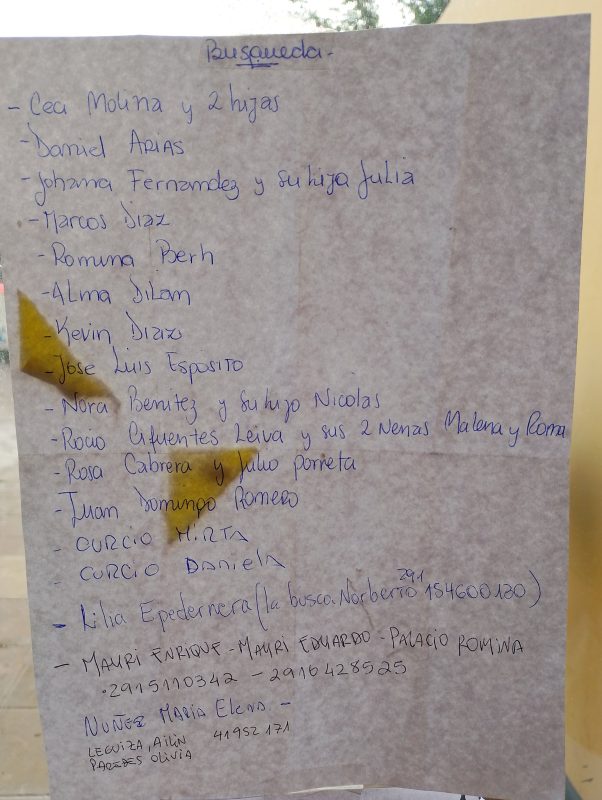 Busqueda-
- Cea Molina y 2 hijas
- Daniel ARIAS
- Johana Fernandez y su hija Julia
- Marcos Diaz
- Romina Berh
- Alma Dilan
- Kevin Diaz
- Jose Luis Esposito
- Nora Benitez y su hijo Nicolas
- Rocio Cifuentes Leiva y sus 2 Nenas Malena y Roma
- Rosa Cabrera y Julio Porreta
- Juan Domingo Romero
- CURCIO MIRTA
- CURCIO DANIELA
- Lilia Epedernera (la busca Norberto 291 154600130)
- MAURI ENRIQUE - MAURI EDUARDO - PALACIO ROMINA
. 2915110342 - 2916428525
NUÑEZ MARIA Elena -
LEGUIZA, AILIN 41952171
PAREDES OLIVIA